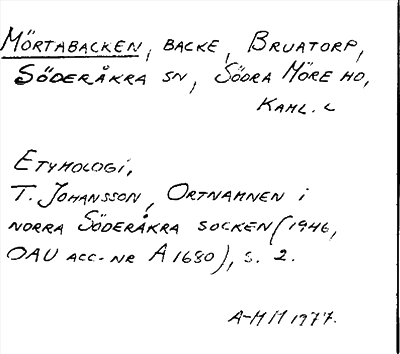 MÖRTABACKEN, BACKE, BRUATORP,
SÖDERÅKRA SN, SÖDRA MÖRE HD,
KAHL. L
ETYMOLOGI,
T. JOHANSSON, ORTNAMNEN i
NORRA SÖDERÅKRA SOCKEN (1946,
OAU ACC-NR A 1680), S. 2.
A-M M 1977.